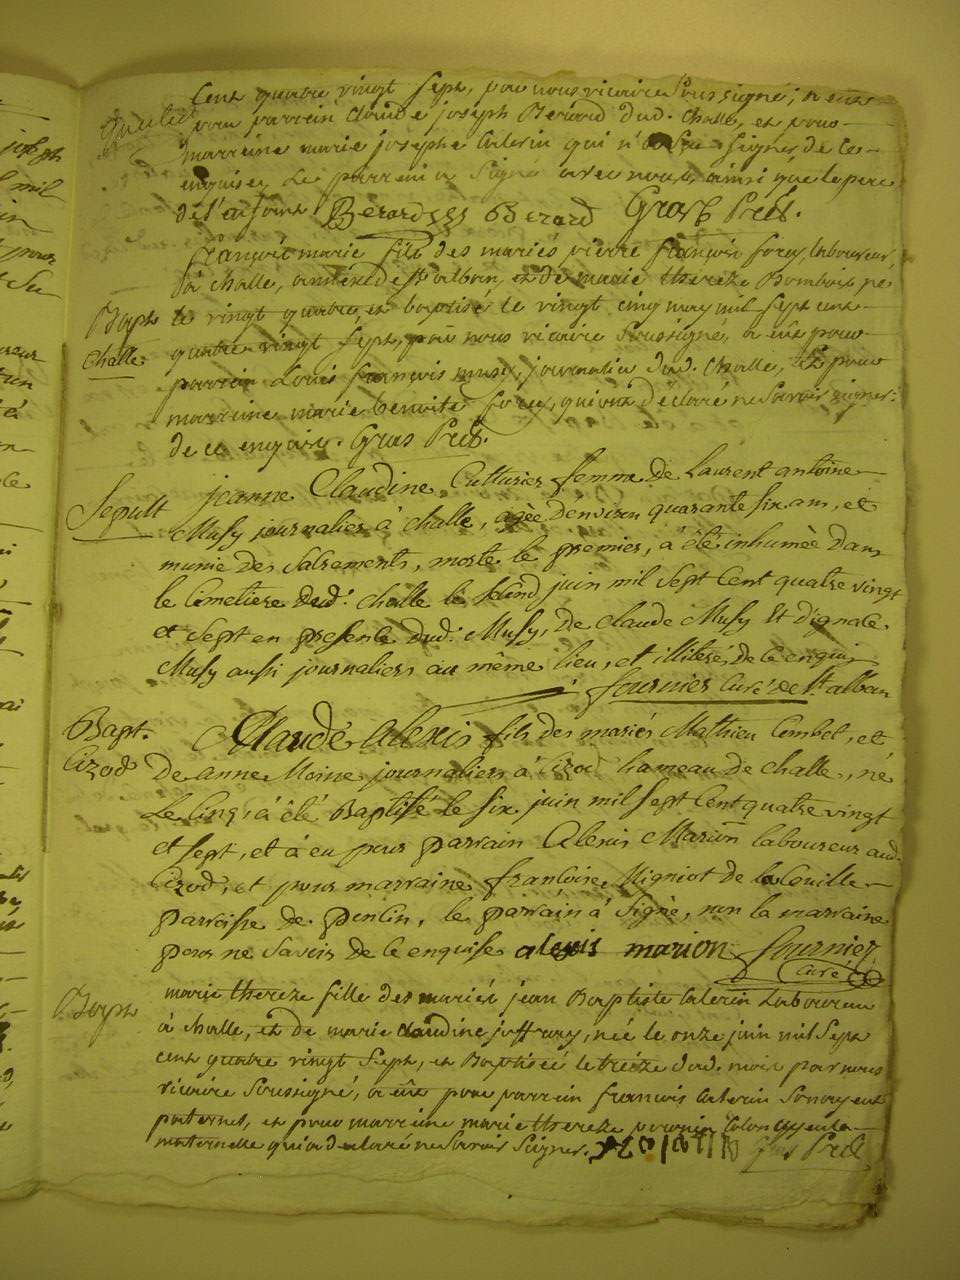 Cent quatre vingt Sept, par nous vicaire Soussigné; a eut
pour parrain claude joseph Berard dud. Challe, et pour
marraine marie josephe Caterin qui n'a Signer de ce
enquise, Le parrain a Signé avec nous, ainsi que le pere
de l'enfant. Berard Berard Gras Prêt.
François marie fils des mariés pierre françois forey, laboureur,
à challe, annéxe de st alban, et de marie thereze Bombois né
Bapt le vingt quatre, et baptisé le vingt cinq may mil sept cent
Challe quatre vingt Sept, par nous vicaire Soussigné, a eut pour
parrain Louis françois musy, journalier dud. challe, et pour
marraine marie benoite forey, qui ont déclaré ne Savoir signer
de ce enquis. Gras Prêt.
Sepult jeanne Claudine Cutturier femme de Laurent antoine
Musy journalier à challe, agèe denviron quarante six ans, et
munie des Sacrements, morte le premier, à été inhumèe dans
le Cimetiere dud. challe le second juin mil Sept Cent quatre vingt
et Sept en presence dud. Musy, de claude Musy Et d'ignace
Musy aussi journaliers au même lieu, et illiterés de ce enquis
fournier Curé de St alban
Bapt. Claude Alexis fils des mariés Mathieu Combet, et
Cizod de anne Moine journaliers à Cizod hameau de challe, né
Le Cinq, à été Baptisé le six juin mil Sept Cent quatre vingt
et sept, et à eu pour parrain Alexis Marion laboureur aud.
Cizod, et pour marraine francoise Migniot de la Couille
parroisse de poncin, le parrain a signé, non la marraine
pour ne savoir de ce enquise alexis marion fournier
Curé
Bapt marie thereze fille des mariés jean Baptiste Caterin Laboureur
à challe, et de marie claudine juffray, née le onze juin mil Sept
cent quatre vingt Sept, et Baptiseé le treize dud. mois par nous
vicaire Soussigné, a eut pour parrain françois Caterin Son ayeul
paternel, et pour marraine marie thereze
maternelle qui a déclaré ne Savoir Signer. Gras Prêt